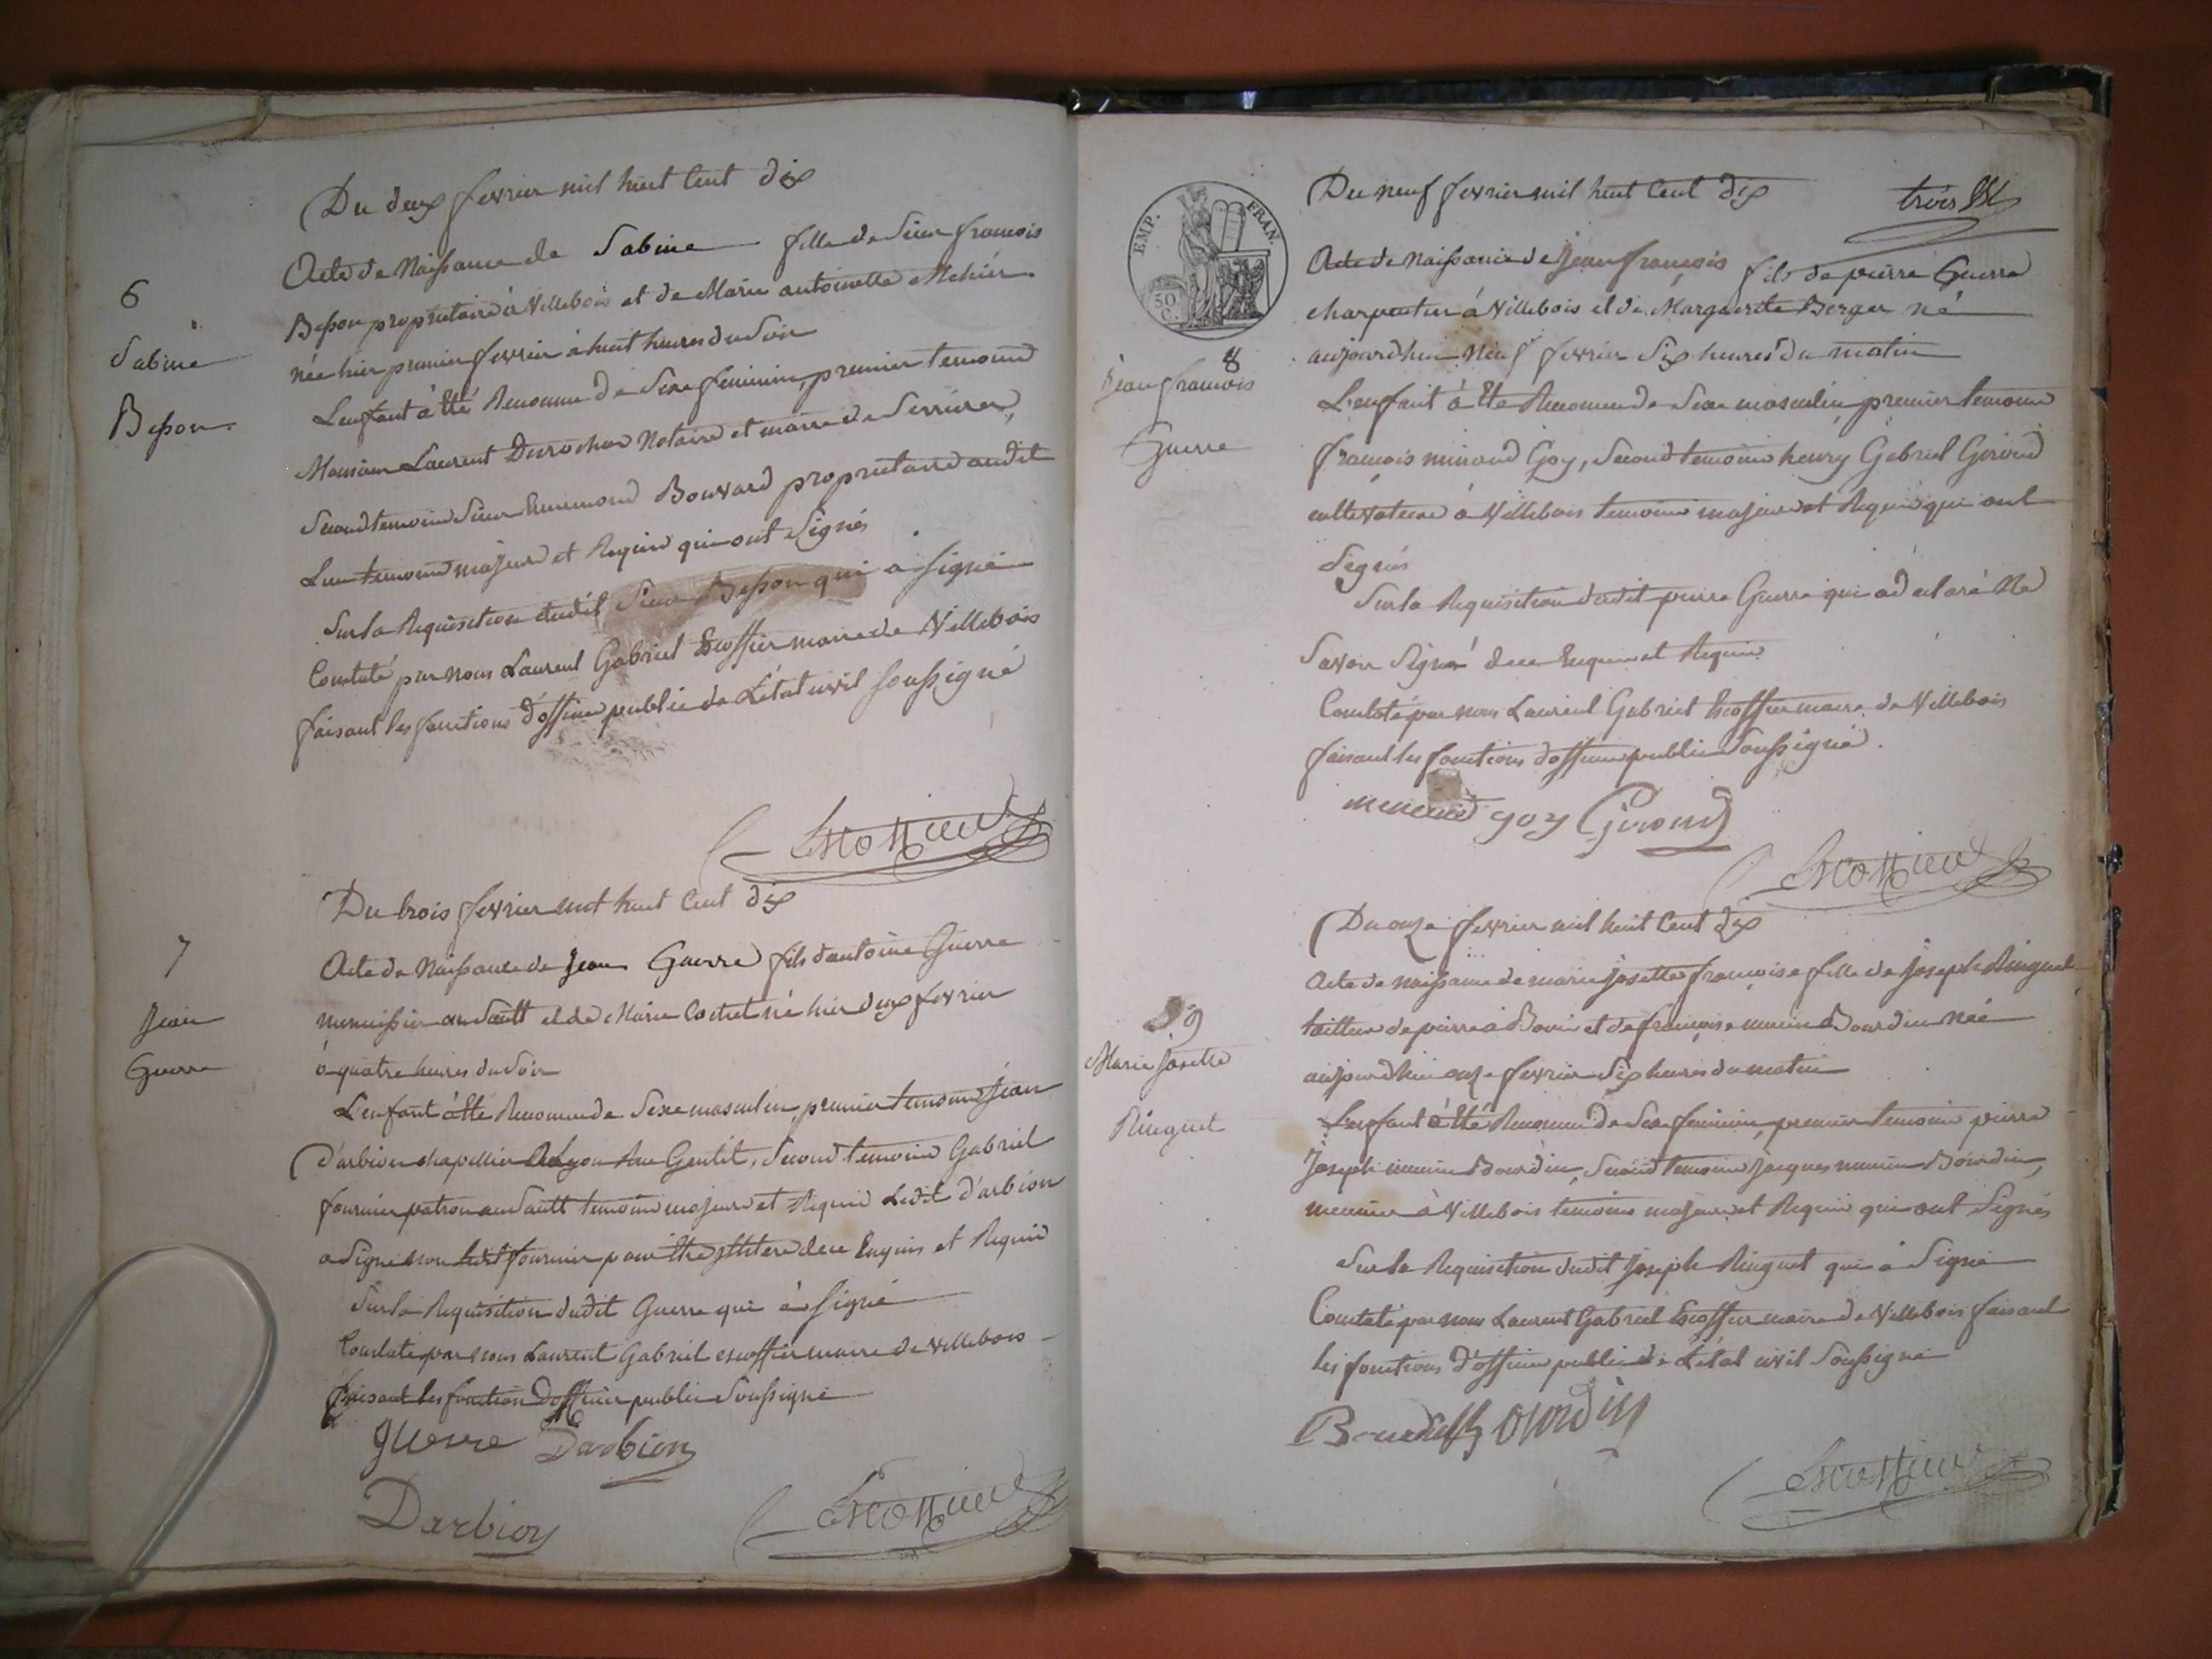 Du deux fevrier mil huit Cent dix
6
Sabine
Besson.
Acte de Naissance de Sabine fille de Sieur francois
Besson proprietaire à Villebois et de Marie antoinette
née hier premier fevrier à huit heures du Soir
L'enfant à été Reconnu de Sexe feminin, premier temoin
Laurent Durochat Notaire et maire de Serrieres,
Second temoin Sieur Ennemond Bouvard proprietaire audit
Lieu temoins majeurs et Requis qui ont Signés
Sur la Requisition dudit Sieur Besson qui à Signé
Constaté par nous Laurent Gabriel Escoffier maire de Villebois
faisant les fonctions d'officier public de L'état civil Soussigné
Escoffier
Du trois fevrier mil huit Cent dix
7
Jean
Guerre
Acte de Naissance de Jean Guerre fils d'antoine Guerre
menuisier au Sault et de Marie né hier deux fevrier
à quatre heures du Soir
L'enfant à été Reconnu de Sexe masculin premier temoin Jean
D'arbion chapellier à Lyon Rue Gentil, Second temoin Gabriel
fournier patron au Sault temoins majeurs et Requis Ledit D'arbion
a Signé non Ledit fournier pour être illitere de ce Enquis et Requis
Sur la Requisition dudit Guerre qui à Signé
Constaté par nous Laurent Gabriel escoffier maire de villebois
faisant les fonction d'officier public Soussigné
guerre Darbion
Darbion
Escoffier
EMP. FRAN.
50 C.
Du neuf fevrier mil huit Cent dix
trois
8
Jean francois
Guerre
Acte de Naissance de Jean francois fils de pierre Guerre
charpentier à Villebois et de Marguerite Berger né
aujourdhui Neuf fevrier Six heures du matin
L'enfant à été Reconnu de Sexe masculin, premier temoin
francois minaud Goy, Second temoin henry Gabriel Giroud
cultivateurs à Villebois temoins majeurs et Requis qui ont
Signés
Sur la Requisition dudit pierre Guerre qui a déclaré Ne
Savoir Signer de ce Enquis et Requis
Constaté par nous Laurent Gabriel Escoffier maire de Villebois
faisant les fonctions d'officier public Soussigné.
goy Giroud
Escoffier
Du onze fevrier mil huit Cent dix
9
Marie Josette
Ringuet
Acte de naissance de marie Josette francoise fille de Joseph Ringuet
tailleur de pierre à Bouis et de francoise munin Bourdin née
aujourdhui onze fevrier Six heures du matin
L'enfant à été Reconnu de Sexe feminin, premier temoin pierre
Joseph munin Bourdin, Second temoin Jacques munin Bourdin,
meunier à Villebois temoins majeurs et Requis qui ont Signés
Sur la Requisition dudit Joseph Ringuet qui à Signé
Constaté par nous Laurent Gabriel Escoffier maire de Villebois faisant
les fonctions d'officier public de L'état civil Soussigné
Escoffier